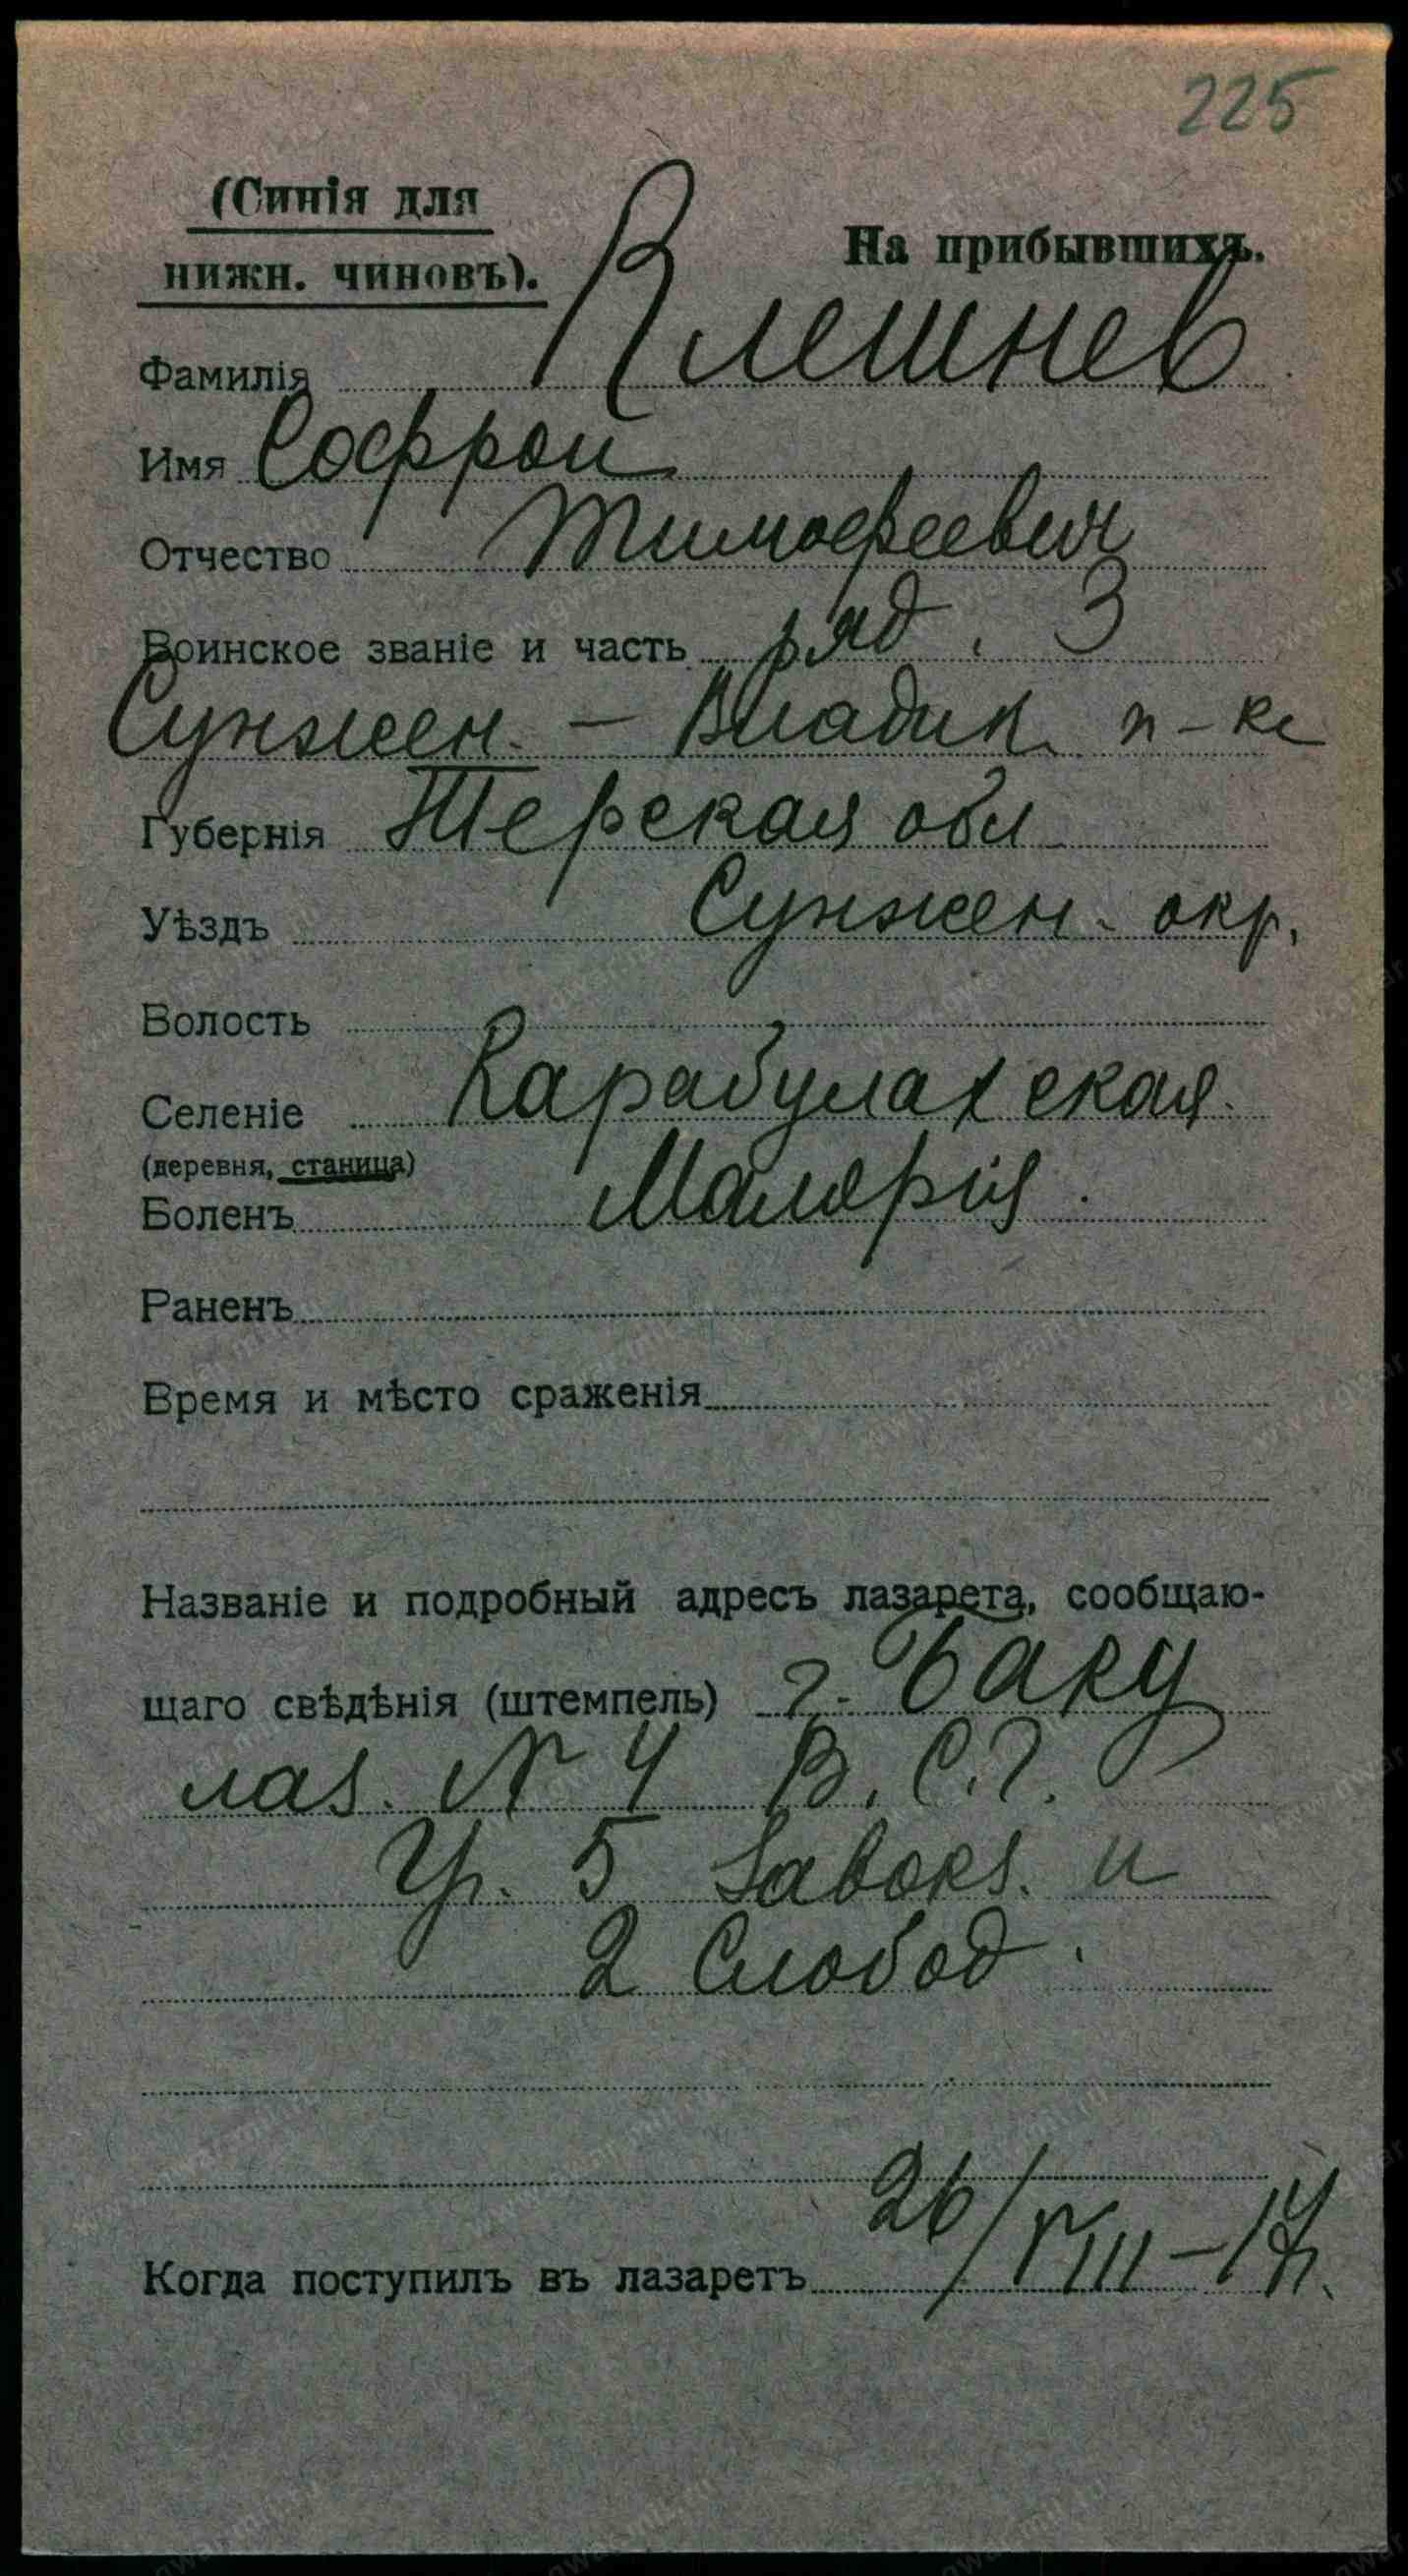 225
(Синія для
нижн. чиновъ).
На прибывшихъ.
Фамилія Клешнев
Имя Софрон
Отчество Тимофеевич
Воинское званіе и часть ряд. 3
Сунжен. - Владик. п-ка
Губернія Терская обл
Уѣздъ Сунжен. окр.
Волость
Селеніе Карабулахская
(деревня, станица)
Боленъ Малярія.
Раненъ
Время и мѣсто сраженія
Названіе и подробный адресъ лазарета, сообщаю-
щаго свѣдѣнія (штемпель) г. Баку
лаз. № 4 В. С. Г.
Уг. 5 Завокз. и
2 Слобод.
Когда поступилъ въ лазаретъ 26/VIII-17